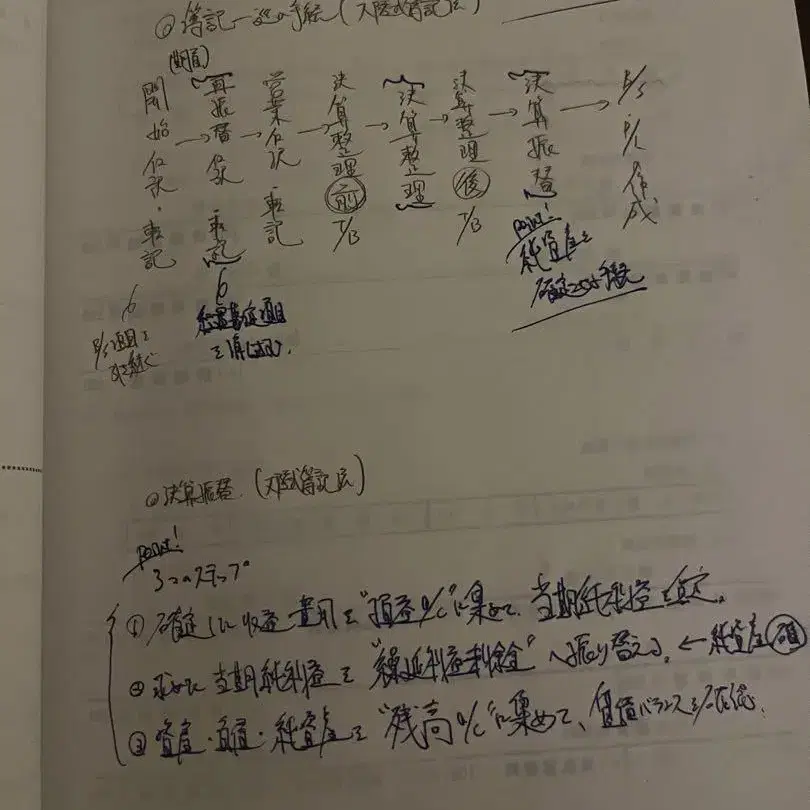 ◎簿記一巡の手続(大陸式簿記法)
(期首)
開始仕訳・転記
→ 再振替仕訳・転記
→ 営業仕訳・転記
→ 決算整理前T/B
→ 決算整理
→ 決算整理後T/B
→ 決算振替
→ B/S P/L 作成
B/S項目を
引き継ぐ
経過勘定項目
Point!
純資産を
確定させる手続
◎決算振替(大陸式簿記法)
Point!
3つのステップ
①確定した収益・費用を"損益a/c"に集めて、当期純利益を算定。
②求めた当期純利益を"繰越利益剰余金"へ振り替える。←純資産確
③資産・負債・純資産を"残高a/c"に集めて、貸借バランスを確認。